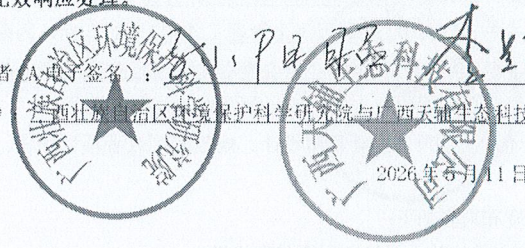 无效响应处理。
者 CA 电子签名）：
广西壮族自治区环境保护科学研究院与广西天辅生态科技
2026 年 5 月 11 日
广西壮族自治区环境保护科学研究院
广西天辅生态科技有限公司